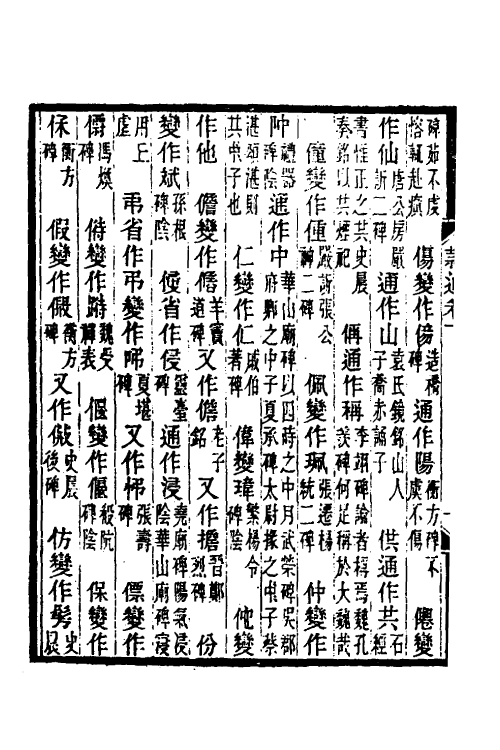 碑茹不虔
傷變作傷 造橋碑 通作陽 衡方碑不虞不陽 僊變
作仙 唐公房嚴訢二碑 通作山 袁氏鏡銘山人子喬赤誦子 供通作共 石經
書惟正之共史晨奏銘以共煙祀 偁通作稱 李翊碑論者稱焉魏孔羨碑何足稱於大魏哉
僮變作偅 嚴訢張公神二碑 佩變作珮 張遷楊統二碑 仲變作
禮器碑陰 通作中 華山廟碑以四時之中月武榮碑吳郡府卿之中子夏承碑太尉掾之中子蔡
湛頌湛則其中子也 仁變作仁 戚伯著碑 偉變瑋 繁楊令碑陰 佗變
作他 儋變作儋 羊竇道碑 又作儋 老子銘 又作擔 晉鄭烈碑 份
變作斌 孫根碑陰 侵省作侵 靈臺碑陰 通作浸 堯廟碑陽氣浸陰華山廟碑寖
用丘虛 弔省作弔變作 夏堪碑 又作 張壽碑 僄變作
馮煥碑 偫變作跱 魏受禪表 偃變作偃 殽阬碑陰 保變作
保 衡方碑 假變作假 衡方碑 又作 史晨後碑 仿變作髣 史晨
隸通卷